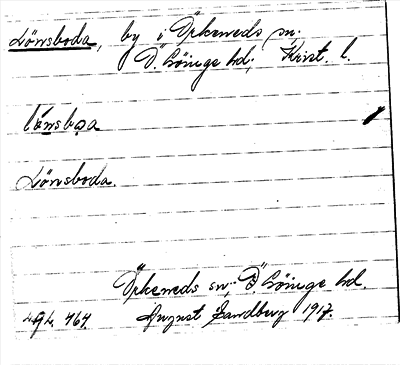 Lönsboda, by i Örkeneds sn.
Ö. Göinge hd, Krist. l.
lönsbɷa
Lönsboda.
Örkeneds sn, Ö. Göinge hd.
August Sandberg 1917.